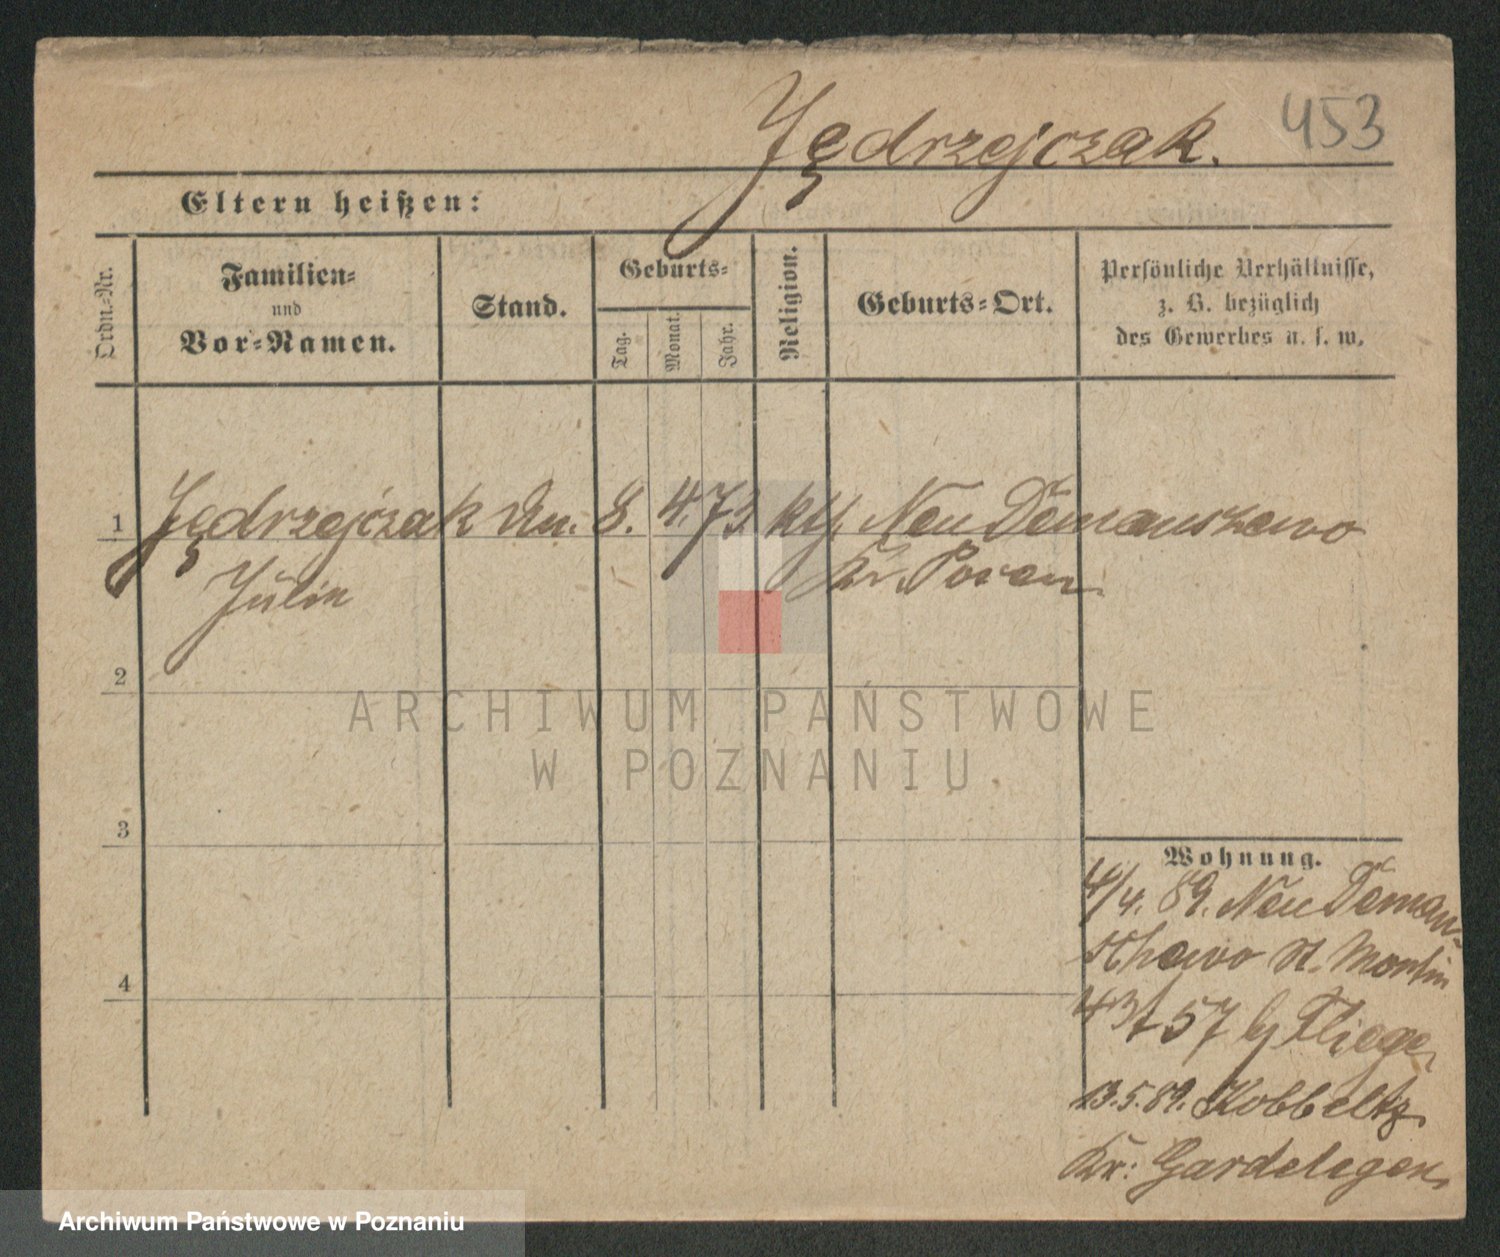 453
Jędrzejczak.
Eltern heißen:
Ordn.-Nr.
Familien-
und
Vor-Namen.
Stand.
Geburts-
Tag.
Monat.
Jahr.
Religion.
Geburts-Ort.
Persönliche Verhältnisse,
z. B. bezüglich
des Gewerbes u. s. w.
1 Jędrzejczak 8. 4. 73 kth. Neu Demanszewo
Julin Kr. Posen
2
3
4
Wohnung.
4/4. 89. Neu Deman-
schewo St. Martin
57 Flieger
13.5.89. Kobbeltz
Kr: Gardelegen
ARCHIWUM PAŃSTWOWE
W POZNANIU
Archiwum Państwowe w Poznaniu